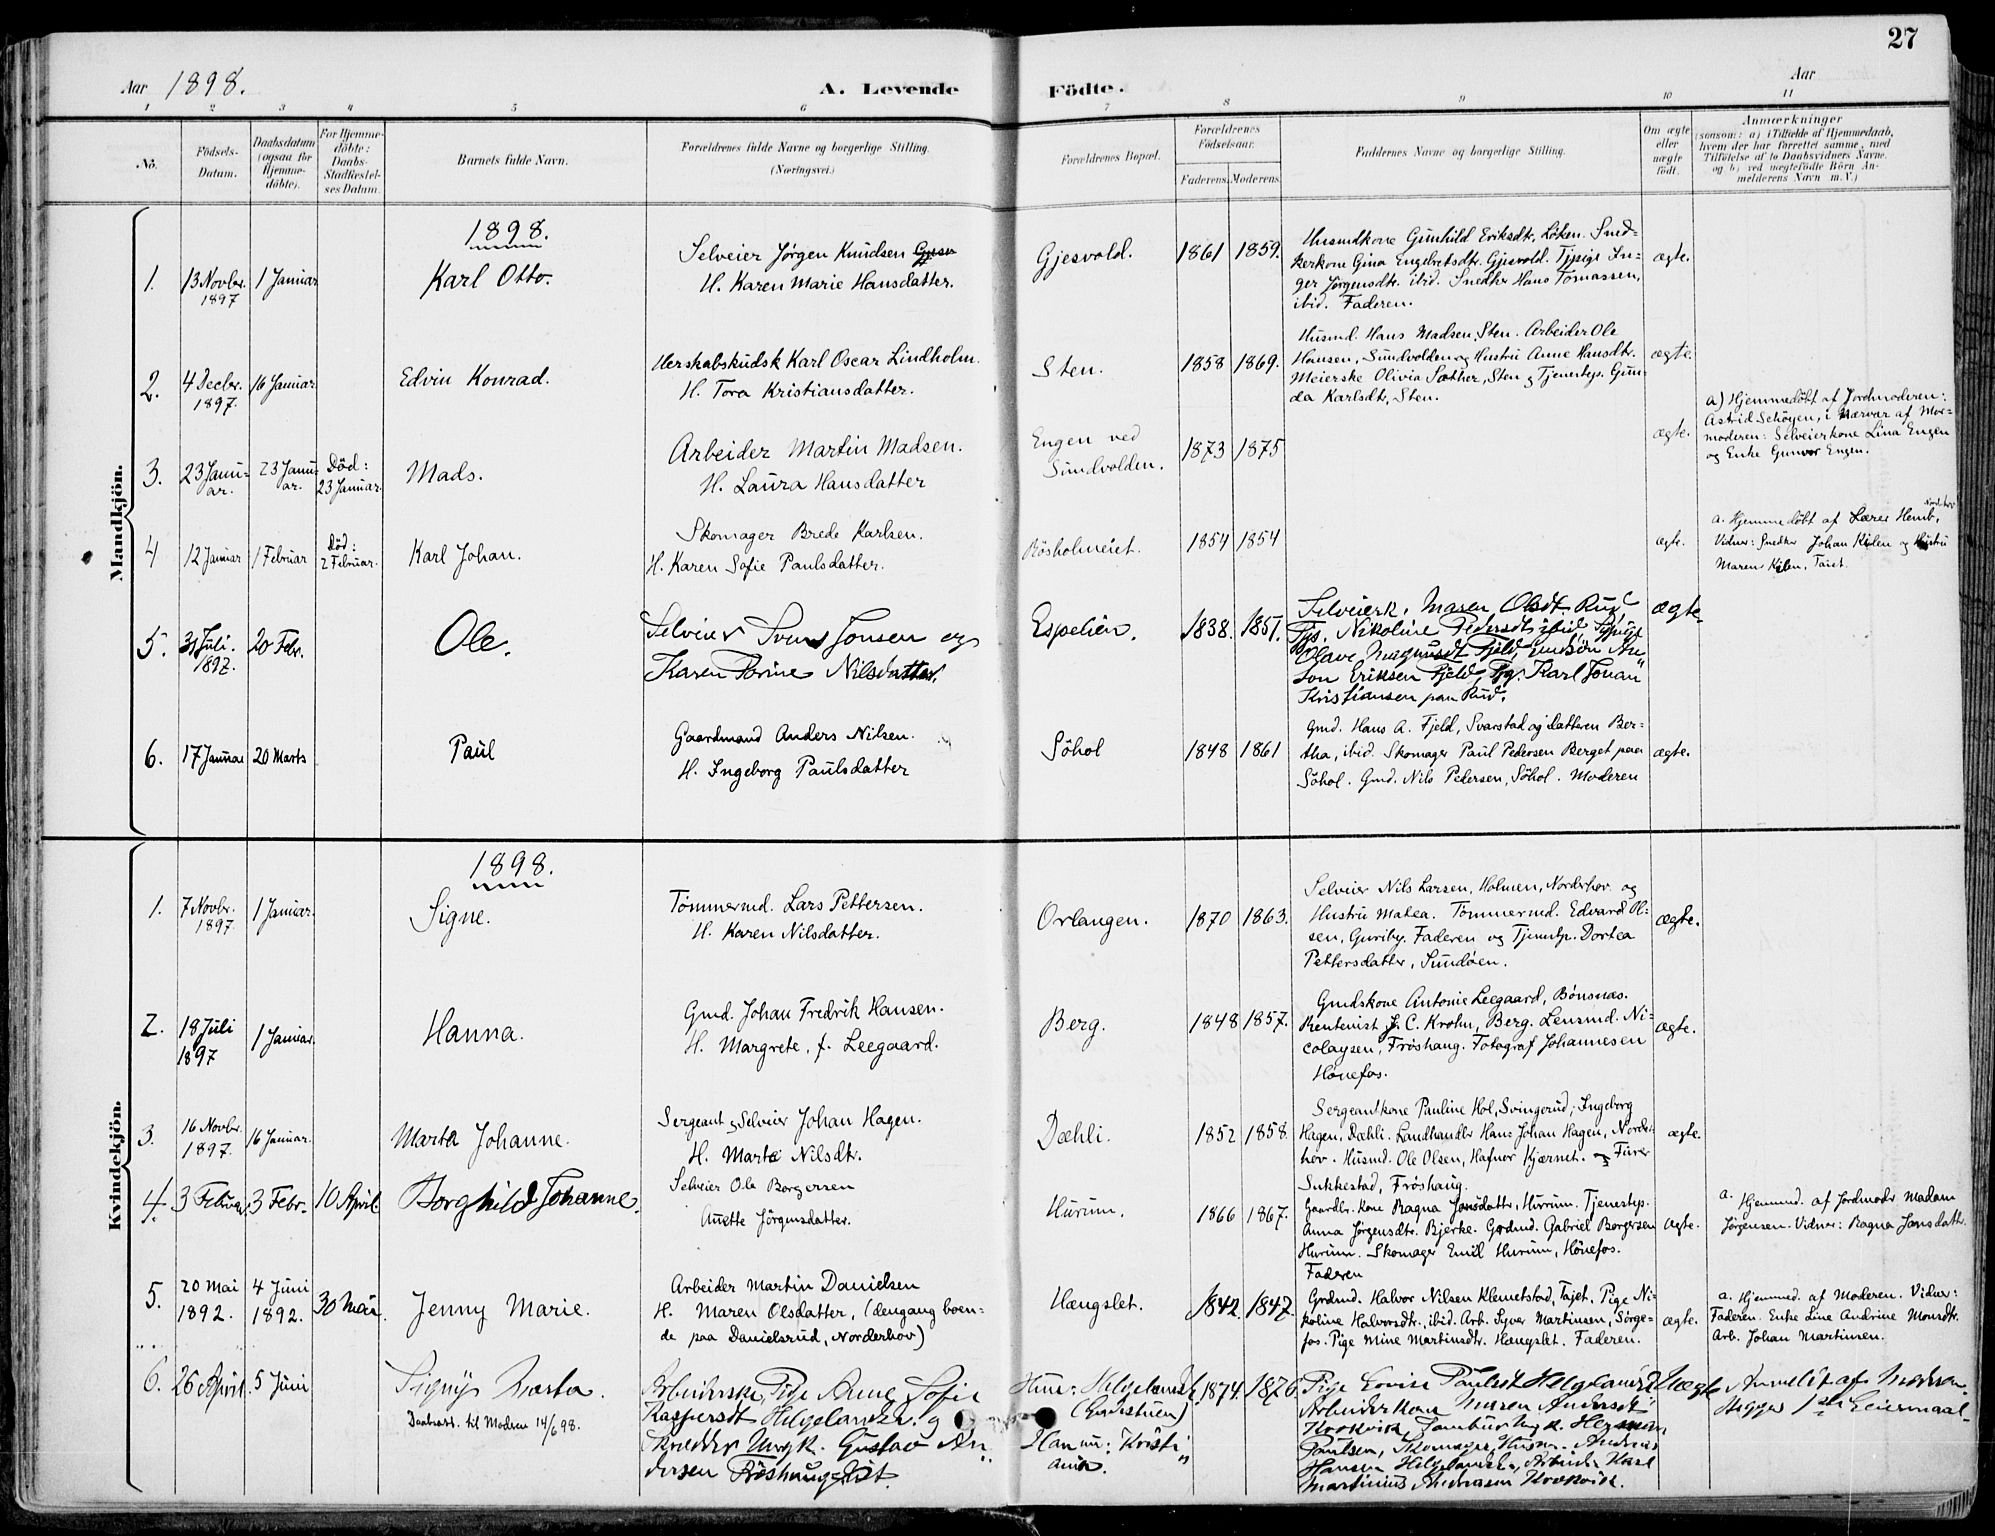 27
Aar 1898.
A. Levende Födte.
Aar
1 2 3 4 5 6 7 8 9 10 11
No.
Födsels-
Datum.
Daabsdatum
(ogsaa for
Hjemme-
döbte).
For Hjemme-
döbte:
Daabs-
Stadfæstel-
ses Datum.
Barnets fulde Navn.
Forældrenes fulde Navne og borgerlige Stilling.
(Næringsvei.)
Forældrenes Bopæl.
Forældrenes
Födselsaar.
Faderens. Moderens.
Faddernes Navne og borgerlige Stilling.
Om ægte
eller
uægte
födt.
Anmærkninger
(saasom: a) i Tilfælde af Hjemmedaab,
hvem der har forrettet samme, med
Tilföielse af to Daabsvidners Navne.
og b) ved uægtefödte Börn An-
melderens Navn m. V.)
Mandkjön.
1898.
1.
13 Novbr.
1897
1 Januar
Karl Otto.
Selveier Jørgen Knudsen
H. Karen Marie Hansdatter.
Gjesvold.
1861
1859.
Husmdkone Gunhild Eriksdtr. Löken. Sned-
kerkone Gina Engebretsdtr. Gjesvold. Tjpige In-
ger Jørgensdtr. ibid. Snedker Hans Tomassen,
ibid. Faderen.
ægte.
2.
4 Decbr.
1897.
16 Januar.
Edvin Konrad.
Herskabskudsk Karl Oscar Lindholm.
H. Tora Kristiansdatter.
Sten.
1858
1869.
Husmd. Hans Madsen, Sten. Arbeider Ole
Hansen, Sundvolden og Hustru Anne Hansdtr.
Meierske Olivia Sæther, Sten og Tjenestep. Gun-
da Karlsdtr, Sten.
ægte.
3.
23 Janu-
ar.
23 Janu-
ar.
Död:
23 Januar.
Mads.
Arbeider Martin Madsen.
H. Laura Hansdatter
Engen ved
Sundvolden.
1873
1875
ægte.
a) Hjemmedöbt af Jordmoderen:
Astrid Schöyen, i Nærvær af Mor-
moderen: Selveierkone Lina Engen
og Enke Gunvor Engen.
4
12 Januar
1 Februar
Död:
2 Februar.
Karl Johan.
Skomager Brede Karlsen.
H. Karen Sofie Paulsdatter.
Rösholmeiet.
1854
1854
ægte.
a. Hjemmedöbt af Lærer Hemb, Norderhov
Vidner: Snedker Johan Kilen og Hustru
Maren Kilen, Taiet.
5.
31 Juli.
1897.
20 Febr.
Ole.
Selveier Svend Jonsen og
Karen Torine Nilsdatter.
Espelien.
1838.
1851.
Selveierk. Maren Olsdt. Rud,
Tjp. Nikoline Pedersdt ibid, Tjpige
Olave Magnusdt Fjeld, Ungkön An-
ton Eriksen Fjeld, Tjg. Karl Johan
Kristiansen paa Rud.
ægte.
6.
17 Januar
20 Marts
Paul
Gaardmand Anders Nilsen.
H. Ingeborg Paulsdatter
Söhol
1848
1861
Gmd. Hans A. Fjeld, Svarstad og datteren Ber-
tha, ibid. Skomager Paul Pedersen Berget paa
Söhol. Gmd. Nils Pedersen, Söhol. Moderen
ægte.
Kvindekjön.
1898.
1.
7 Novbr.
1897.
1 Januar.
Signe.
Tömmermd. Lars Pettersen.
H. Karen Nilsdatter.
Orlangen.
1870
1863.
Selveier Nils Larsen, Holmen, Norderhov. og
Hustru Matea. Tömmermd. Edvard Ol-
sen, Guriby. Faderen og Tjenestp. Dortea
Pettersdatter, Sundöen.
ægte.
2.
18 Juli
1897
1 Januar.
Hanna.
Gmd. Johan Fredrik Hansen.
H. Margrete, f. Leegaard.
Berg.
1848
1857.
Gmdskone Antonie Leegaard, Bönsnæs.
Rentenist J. C. Krohn, Berg. Lensmd. Ni-
colaysen, Fröshaug. Fotograf Johannesen
Hönefos.
ægte.
3.
16 Novbr.
1897.
16 Januar.
Marta Johanne.
Sergeant og Selveier Johan Hagen.
H. Marte Nilsdtr.
Dæhli.
1852
1858.
Sergeantkone Pauline Hol, Svingerud; Ingeborg
Hagen, Dæhli. Landhandler Hans Johan Hagen, Norder-
hov. Husmd. Ole Olsen, Hafnor Kjærnet. og Furer
Sukkestad, Fröshaug.
ægte.
4.
3 Februar
3 Febr.
10 April.
Borghild Johanne.
Selveier Ole Borgersen
Anette Jörgensdatter.
Hurum.
1866
1867.
Gaardbr. kone Ragna Jonsdatter, Hurum. Tjenestep.
Anna Jørgensdtr. Bjerke. Grdmd. Gabriel Borgersen
Hurum. Skomager Emil Hurum, Hönefos.
Faderen
ægte.
a. Hjemmd. af Jordmoder Madam
Jørgensen. Vidner: Ragna Jansdatter.
5.
20 Mai
1892.
4 Juni
1892.
30 Mai.
Jenny Marie.
Arbeider Martin Danielsen
H. Maren Olsdatter, (dengang boen-
de paa Danielsrud, Norderhov)
Hængslet.
1842.
1847.
Grdmd. Halvor Nilsen Klemetstad, Tajet. Pige Ni-
koline Halvorsdtr., ibid. Arb. Syver Martinsen, Sörge-
fos. Pige Mine Martinsdtr. Hængslet. Faderen.
ægte.
a. Hjemmed. af Moderen. Vidner:
Faderen. Enke Line Andrine Monsdtr.
Arb. Johan Martinsen.
6.
26 April.
5 Juni
Signy Marta.
Daabsatt. til Modren 14/6 98.
Arbeiderske, Pige Anne Sofie
Kaspersdt Helgelandsk. og
Ungk. Gustav An-
dersen Röshaugeiet.
Hun: Helgelandsk
(Gudestuen)
Han: Kristi-
ania.
1874.
1876.
Pige Lovise Paulsdt Helgelandsk
Arbeiderkone Maren Andersdt
Krokvik, Ungk. Herman
Paulsen, Skomager, Husm. Andreas
Hansen Helgelandsk, Arbeider Karl
Martinius Andreassen Krokvik.
Uægte
Anmeldt af Modren.
Begges 1ste Leiermaal.